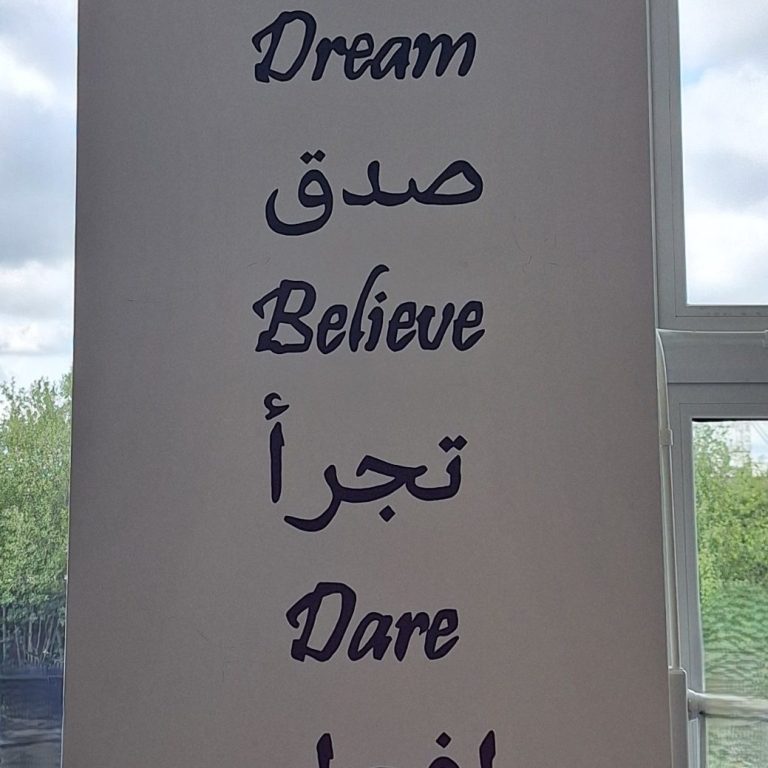 Dream
صدق
Believe
تجرأ
Dare